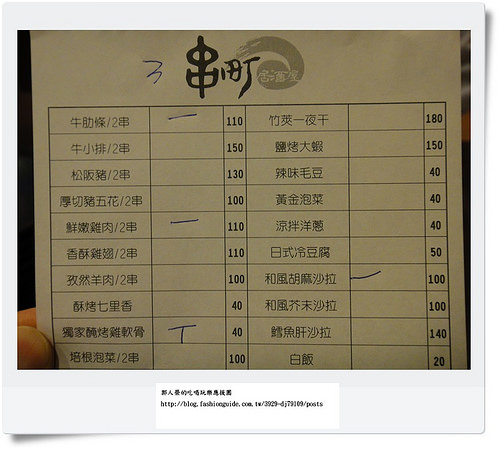 3 串町 居酒屋
牛肋條/2串 一 110 竹莢一夜干 180
牛小排/2串 150 鹽烤大蝦 150
松阪豬/2串 130 辣味毛豆 40
厚切豬五花/2串 100 黃金泡菜 40
鮮嫩雞肉/2串 一 110 涼拌洋蔥 40
香酥雞翅/2串 110 日式冷豆腐 50
孜然羊肉/2串 100 和風胡麻沙拉 一 100
酥烤七里香 40 和風芥末沙拉 100
獨家醃烤雞軟骨 T 40 鱈魚肝沙拉 140
培根泡菜/2串 100 白飯 20
郭人榮的吃喝玩樂應援團
http://blog.fashionguide.com.tw/3929-dj79109/posts